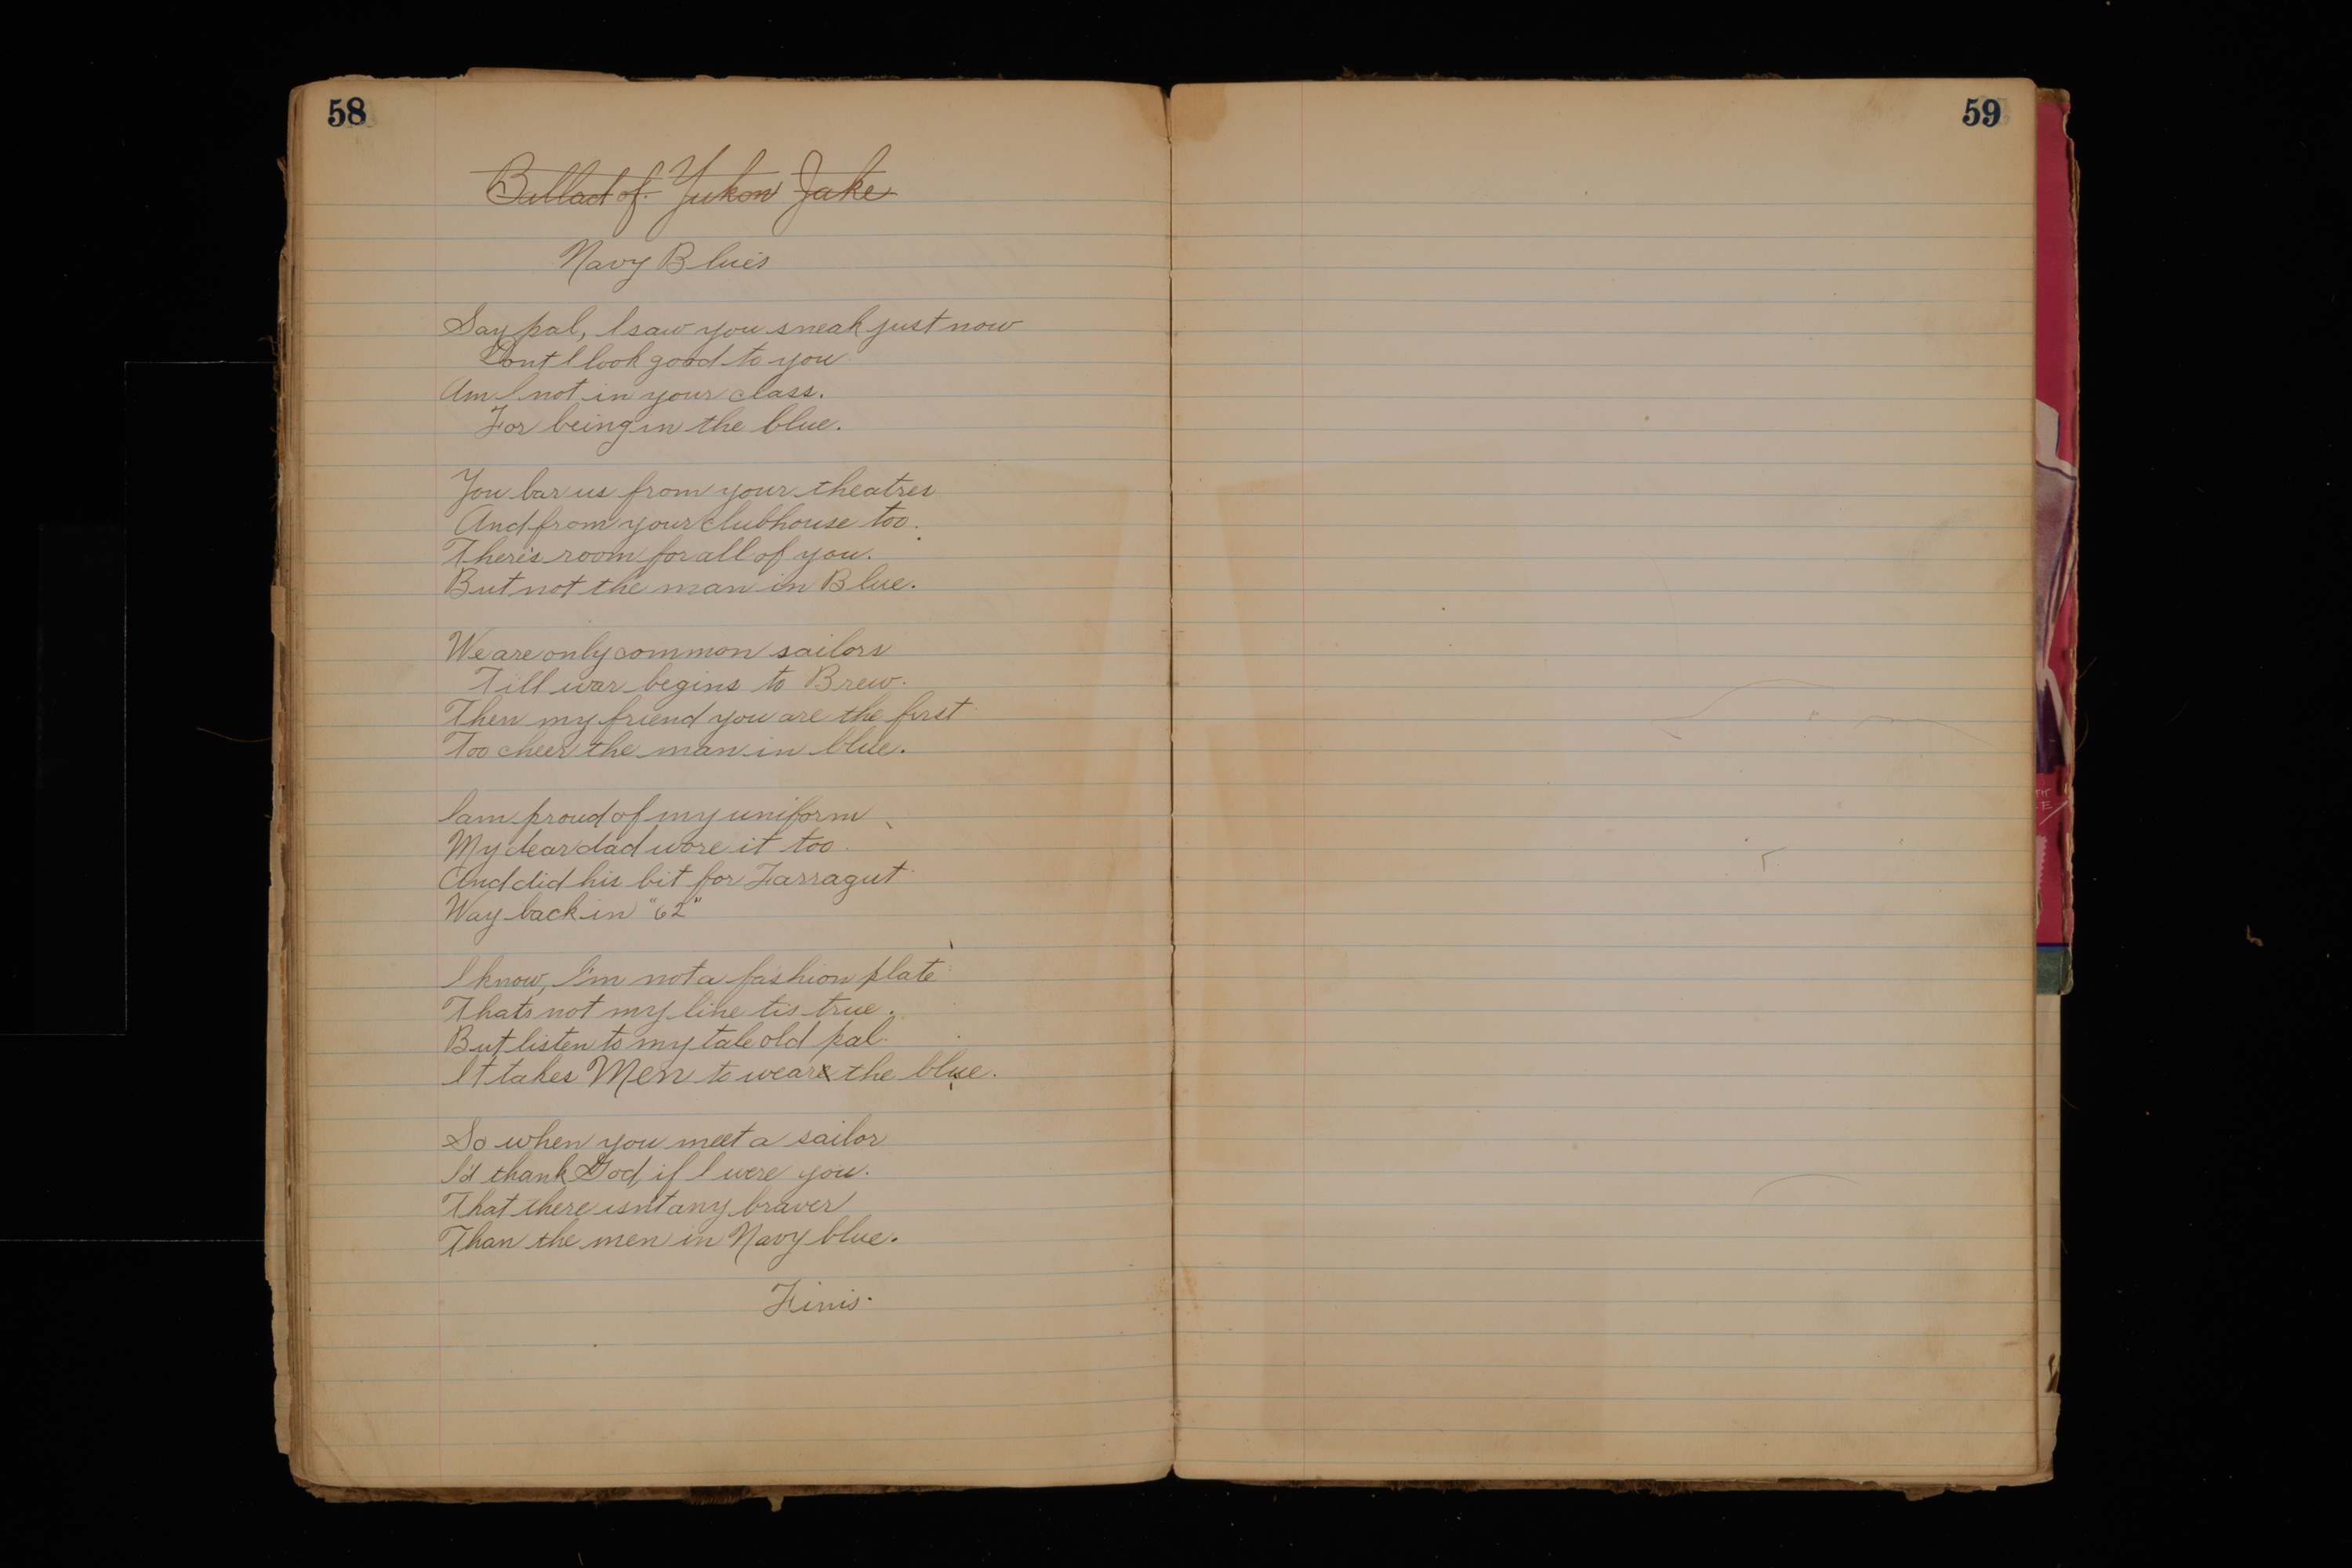 58
Ballad of Yukon Jake
Navy Blues
Say pal, I saw you sneak just now
Dont I look good to you
Am I not in your class.
For being in the blue.
You bar us from your theatres
And from your clubhouse too.
There's room for all of you.
But not the man in Blue.
We are only common sailors
Till war begins to Brew.
Then my friend you are the first
Too cheer the man in blue.
I am proud of my uniform
My dear dad wore it too.
And did his bit for Farragut
Way back in "62"
I know, I'm not a fashion plate
Thats not my line tis true.
But listen to my tale old pal.
It takes Men to wear the blue.
So when you meet a sailor
I'd thank God, if I were you.
That there isn't any braver
Than the men in Navy blue.
Finis.
59